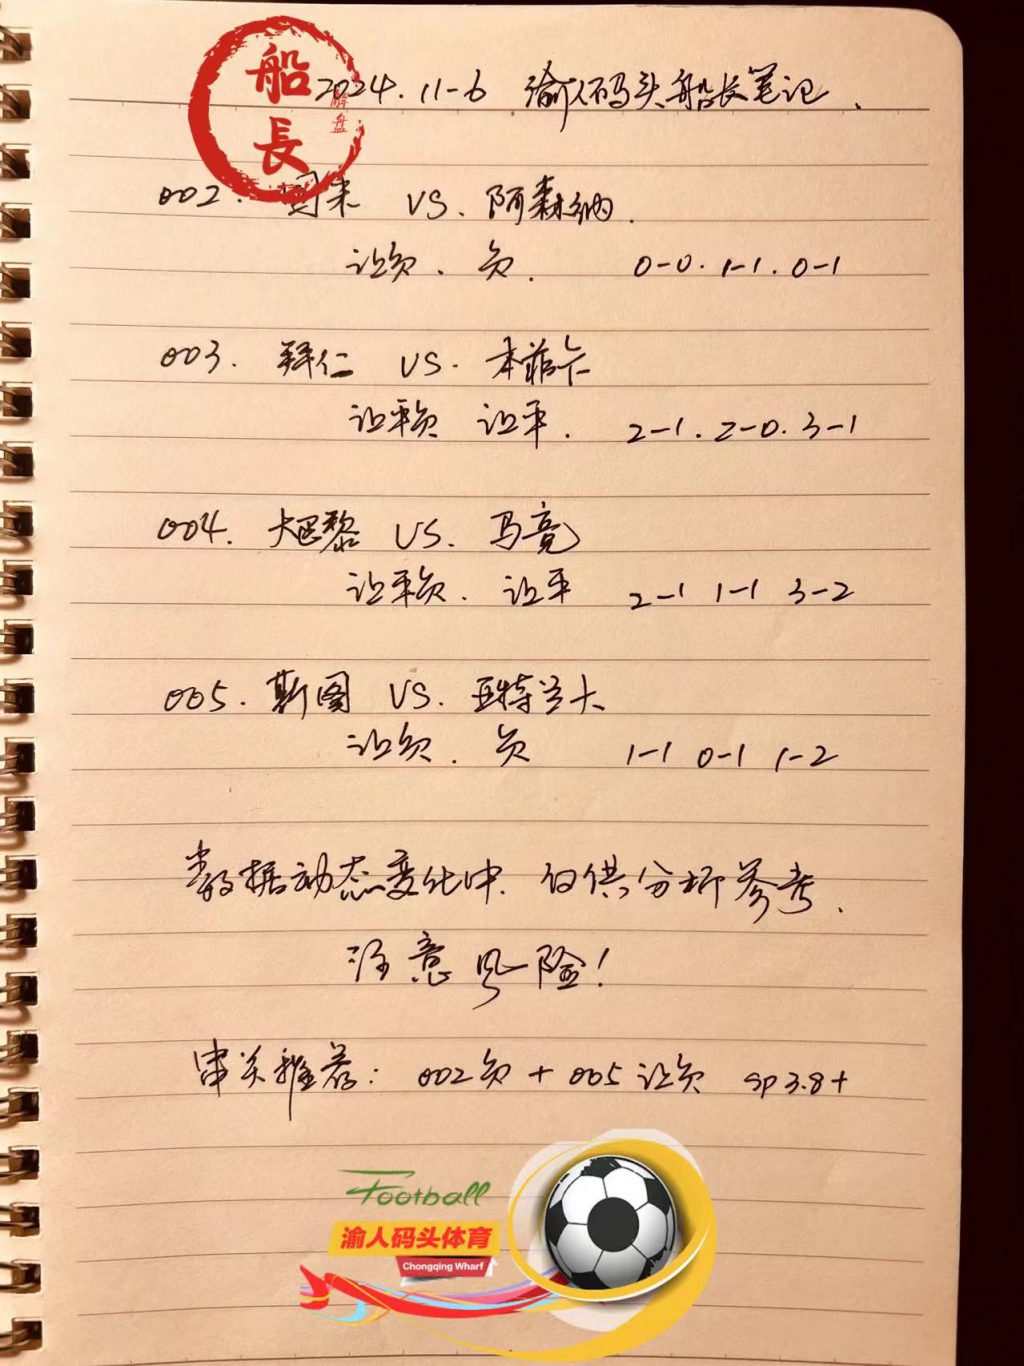 船長
解盘
2024.11-6 渝人码头船长笔记.
002. 国米 VS. 阿森纳.
让负. 负. 0-0. 1-1. 0-1
003. 拜仁 VS. 本菲卡
让平负 让平. 2-1. 2-0. 3-1
004. 大巴黎 VS. 马竞
让平负. 让平 2-1 1-1 3-2
005. 斯图 VS. 亚特兰大
让负. 负 1-1 0-1 1-2
数据动态变化中. 仅供分析参考.
注意风险!
串关推荐: 002负 + 005让负 sp3.8+
Football
渝人码头体育
Chongqing Wharf